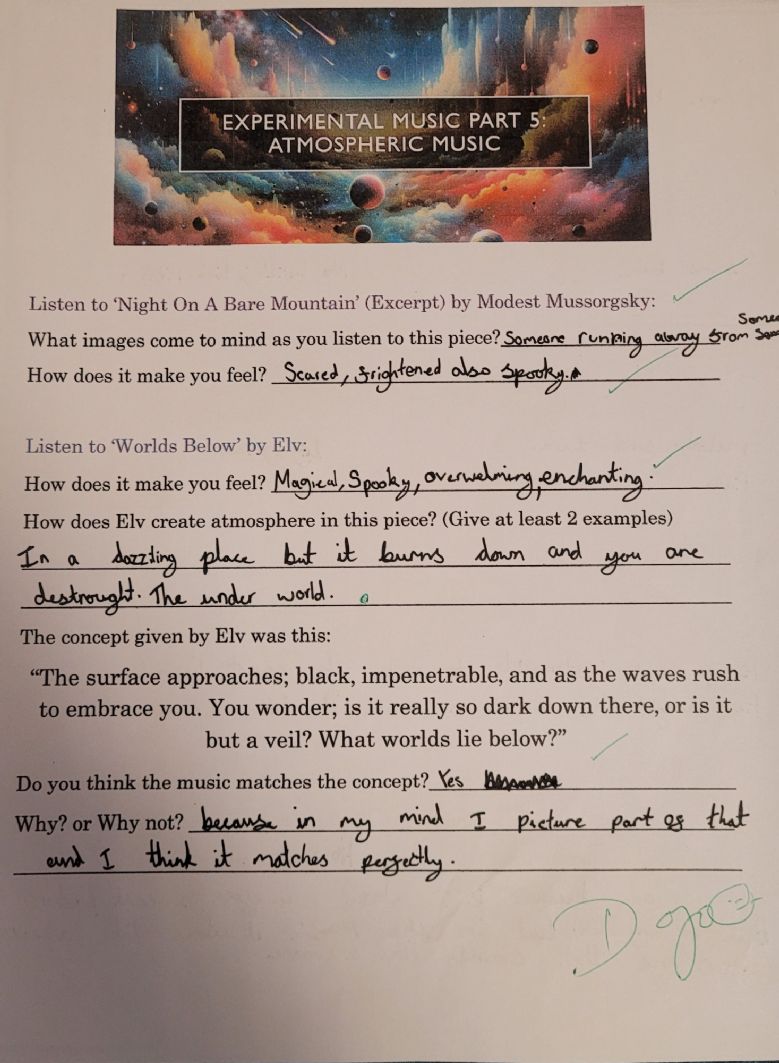 EXPERIMENTAL MUSIC PART 5:
ATMOSPHERIC MUSIC
Listen to ‘Night On A Bare Mountain’ (Excerpt) by Modest Mussorgsky:
What images come to mind as you listen to this piece? Someone running away from
How does it make you feel? Scared, frightened also spooky.
Listen to ‘Worlds Below’ by Elv:
How does it make you feel? Magical, Spooky, overwelming, enchanting.
How does Elv create atmosphere in this piece? (Give at least 2 examples)
In a dazzling place but it burns down and you are
destrought. The under world.
The concept given by Elv was this:
“The surface approaches; black, impenetrable, and as the waves rush
to embrace you. You wonder; is it really so dark down there, or is it
but a veil? What worlds lie below?”
Do you think the music matches the concept? Yes
Why? or Why not? because in my mind I picture part of that
and I think it matches perfectly.
Dojo